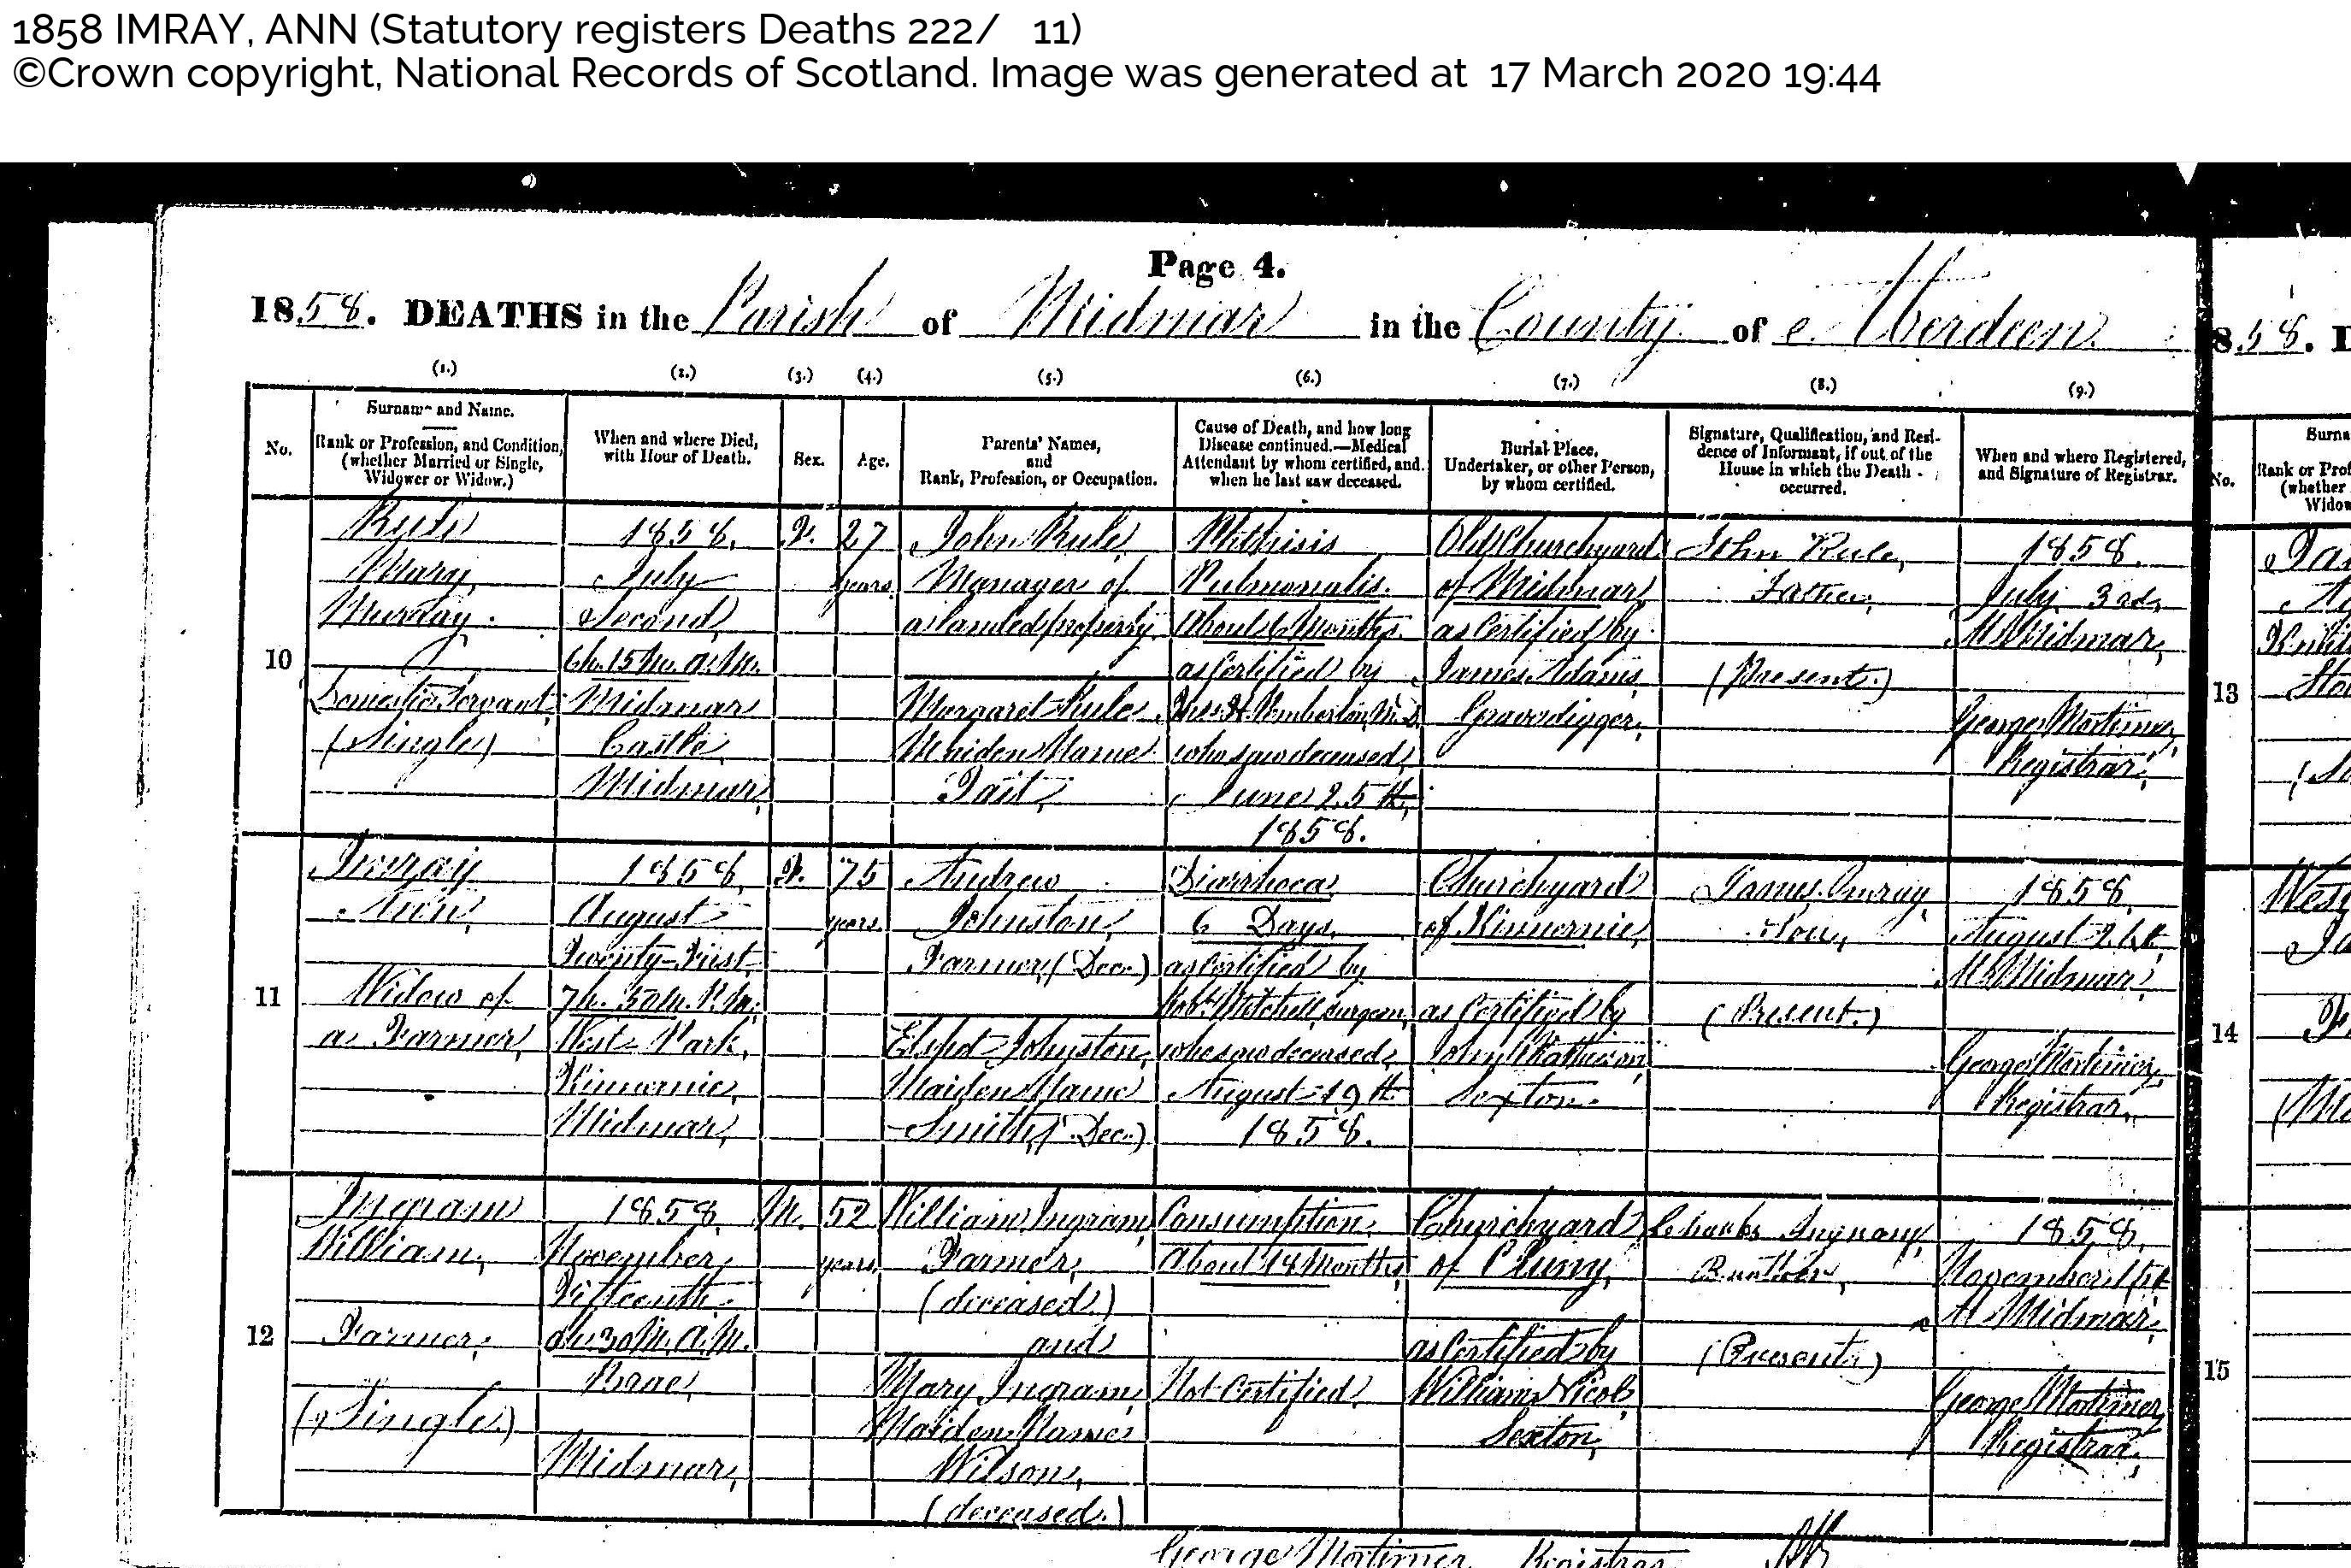 1858 IMRAY, ANN (Statutory registers Deaths 222/ 11)
©Crown copyright, National Records of Scotland. Image was generated at 17 March 2020 19:44
Page 4.
1858. DEATHS in the Parish of Midmar in the County of Aberdeen
858.
(1.) (2.) (3.) (4.) (5.) (6.) (7.) (8.) (9.)
No.
Surname and Name.
Rank or Profession, and Condition,
(whether Married or Single,
Widower or Widow.)
When and where Died,
with Hour of Death.
Sex.
Age.
Parents' Names,
and
Rank, Profession, or Occupation.
Cause of Death, and how long
Disease continued.—Medical
Attendant by whom certified, and
when he last saw deceased.
Burial Place,
Undertaker, or other Person,
by whom certified.
Signature, Qualification, and Resi-
dence of Informant, if out of the
House in which the Death
occurred.
When and where Registered,
and Signature of Registrar.
No.
10
Rule
Mary
Murray
Domestic Servant
(Single)
1858.
July
Second
6h. 15m. A.M.
Midmar
Castle,
Midmar,
F.
27
years.
John Rule
Manager of
a landed property
Margaret Rule
Maiden Name
Tait,
Phthisis
Pulmonalis.
About 6 Months.
as Certified by
Pemberton M.D.
who saw deceased
June 25th,
1858.
Old Churchyard
of Midmar
as Certified by
James Adams
Gravedigger,
John Rule,
Father,
(Present.)
1858.
July 3rd,
At Midmar,
George Mortimer
Registrar,
11
Imray
Ann,
Widow of
a Farmer,
1858,
August
Twenty-First
7h. 50m. P.M.
West Park,
Kinnernie,
Midmar,
F.
75
years.
Andrew
Johnston,
Farmer, (Dec.)
Elspet Johnston,
Maiden Name
Smith, (Dec.)
Diarrhoea
6 Days,
as certified by
Robt. Mitchell, surgeon,
who saw deceased,
August 19th
1858.
Churchyard
of Kinnernie,
as certified by
John
Sexton.
James Imray
Son,
(Present.)
1858,
August
At Midmar,
George Mortimer,
Registrar,
12
Ingram
William,
Farmer,
(Single.)
1858,
November
Fifteenth
30M. A.M.
Brae,
Midmar,
M.
52
years,
William Ingram,
Farmer,
(deceased)
and
Mary Ingram,
Maiden Name
Wilson,
(deceased.)
Consumption,
About 18 Months,
Not Certified,
Churchyard
of Cluny,
as Certified by
William Nicol
Sexton,
Charles Ingram,
Brother,
(Present.)
1858,
November
At Midmar,
George Mortimer
Registrar,
George Mortimer Registrar
13
14
15